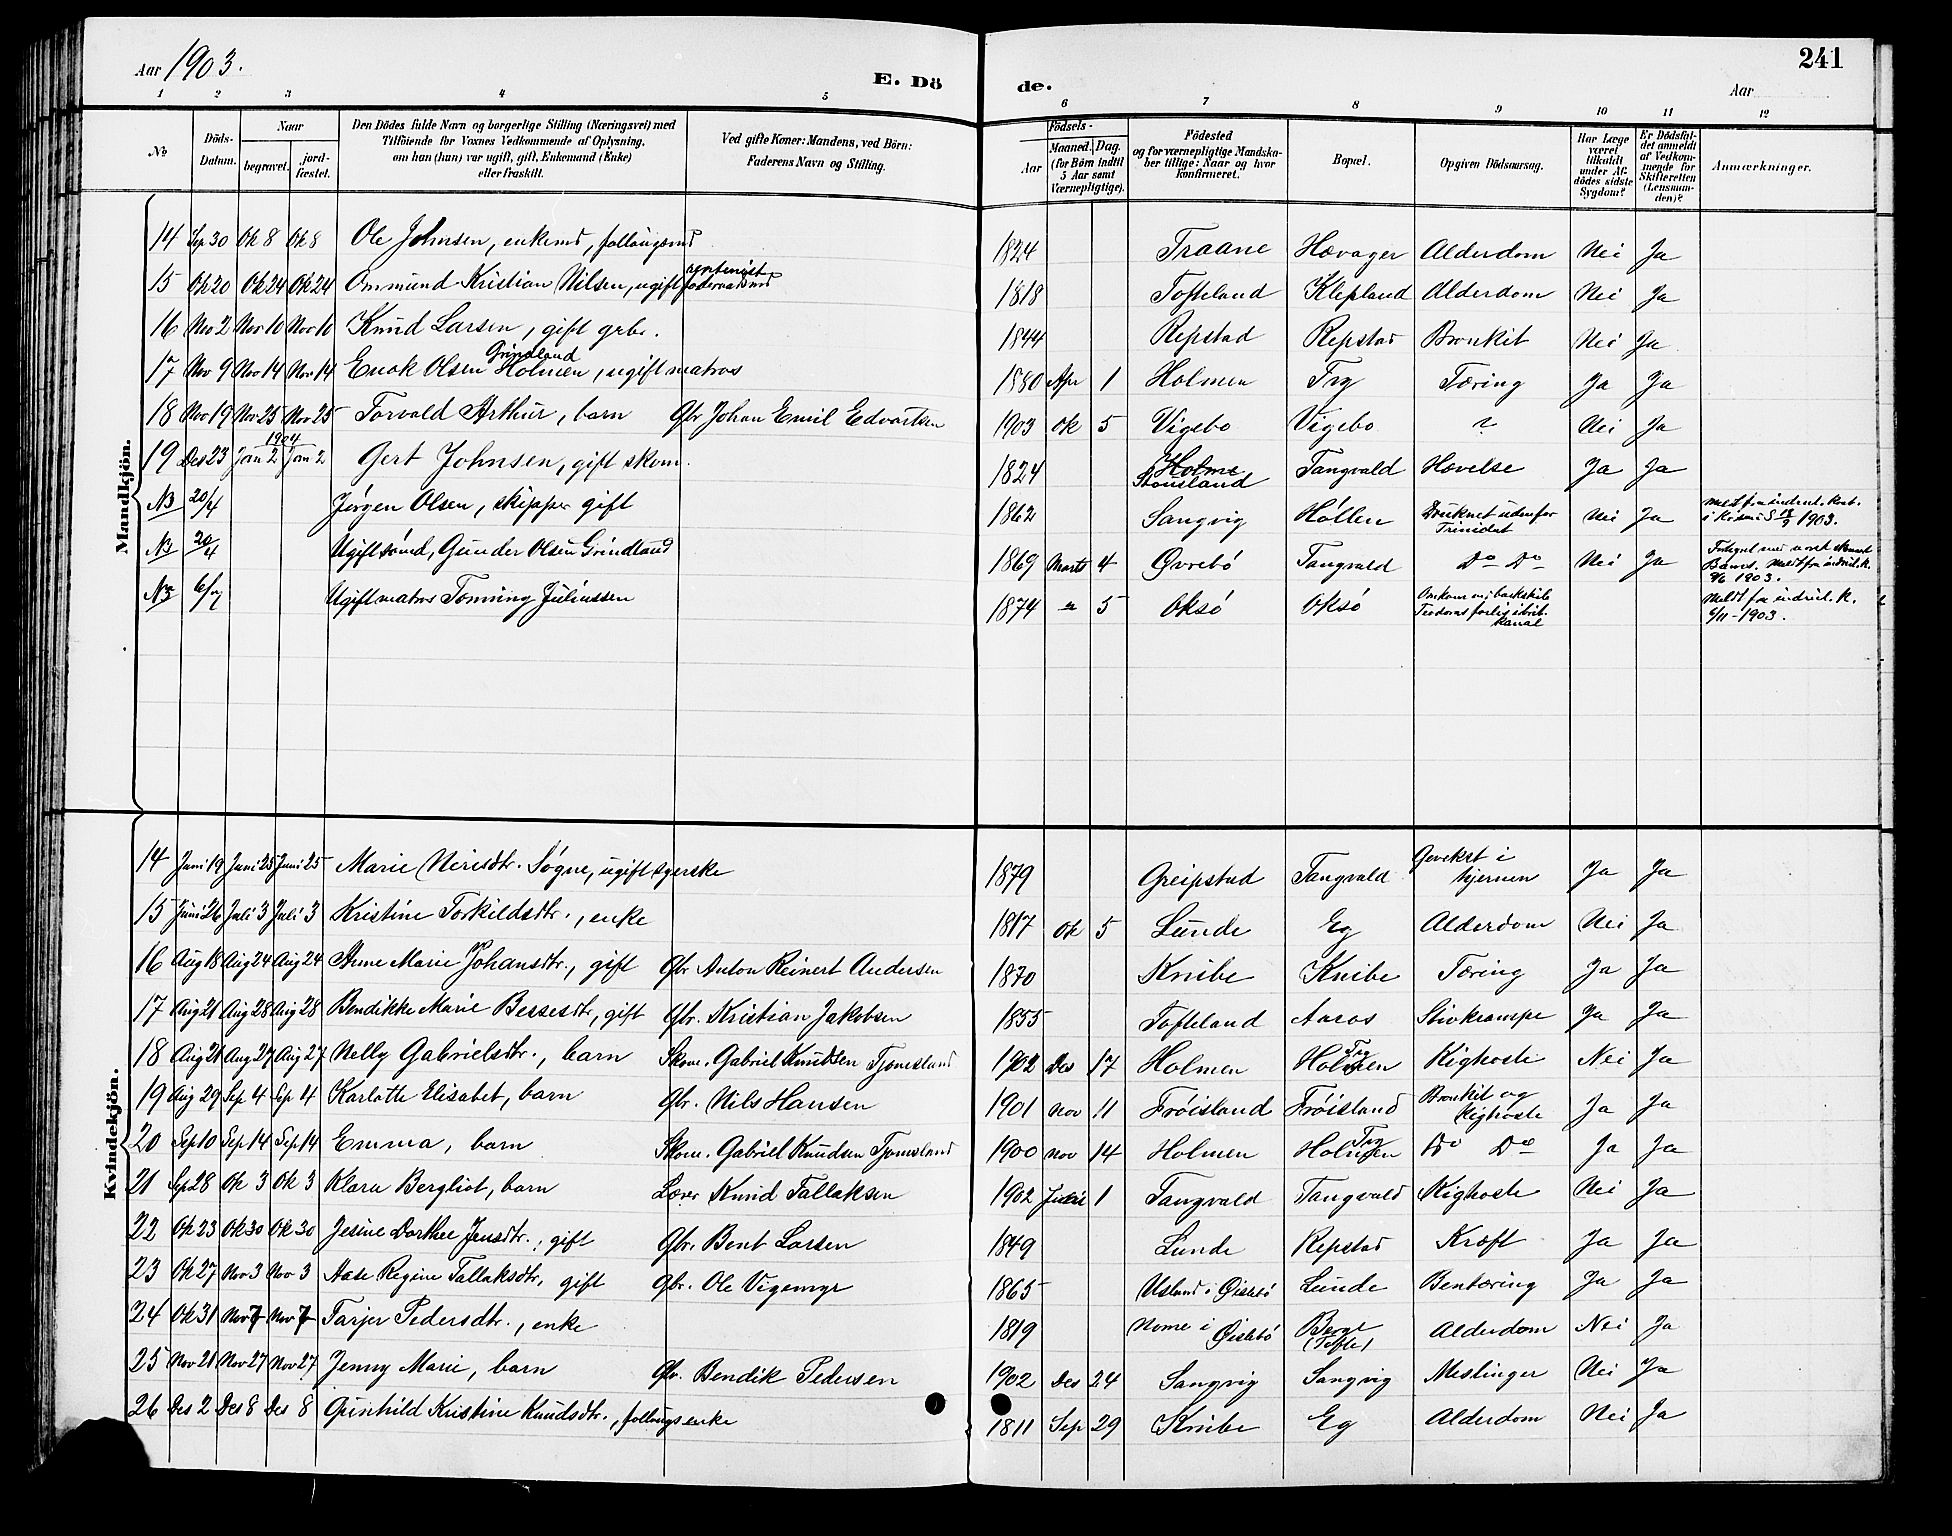 Aar 1903. E. Dö de. Aar 241
1 2 3 4 5 6 7 8 9 10 11 12
No
Döds-Datum.
Naar
begravet.
jord-fæstet.
Den Dödes fulde Navn og borgerlige Stilling (Næringsvei) med
Tilföiende for Voxnes Vedkommende af Oplysning,
om han (hun) var ugift, gift, Enkemand (Enke)
eller fraskilt.
Ved gifte Koner: Mandens, ved Börn:
Faderens Navn og Stilling.
Födsels-
Aar
Maaned. Dag.
(for Börn indtil
5 Aar samt
Værnepligtige).
Födested
og for værnepligtige Mandska-
ber tillige: Naar og hvor
konfirmeret.
Bopæl.
Opgiven Dödsaarsag.
Har Læge
været
tilkaldt
under Af-
dödes sidste
Sygdom?
Er Dödsfal-
det anmeldt
af Vedkom-
mende for
Skifteretten
(Lensman-
den)?
Anmærkninger.
Mandkjön.
14 Sep 30 Ok 8 Ok 8 Ole Johnsen, enkemd, follaugsmd 1824 Traane Hævager Alderdom Nei Ja
15 Ok 20 Ok 24 Ok 24 Ommund Kristian Nilsen, ugift foderaadsmd 1818 Tofteland Klepland Alderdom Nei Ja
16 Nov 2 Nov 10 Nov 10 Knud Larsen, gift grbr. 1844 Repstad Repstad Bronkit Nei Ja
17 Nov 9 Nov 14 Nov 14 Enok Olsen Grindland Holmen, ugift matros 1880 Apr 1 Holmen Try Tæring Ja Ja
18 Nov 19 Nov 25 Nov 25 Torvald Arthur, barn Gbr Johan Emil Edvartsen 1903 Ok 5 Vigebo Vigebo ? Nei Ja
19 Des 23 1904 Jan 2 Jan 2 Gert Johnsen, gift skom. 1824 Holme Stousland Tangvald Hævelse Ja Ja
NB 20/4 Jørgen Olsen, skipper gift 1862 Sangvig Høllen Druknet udenfor Trinidat Nei Ja Meldt fra indrul. kont. i Krsands 1903.
NB 20/4 Ugift sømd, Gunder Olsen Grindland 1869 Marts 4 Øvrebø Tangvald Do Do Nei Ja Meldt fra indrul. k. 1903.
NB 6/ Ugift matros Tønning Juliussen 1874 " 5 Oksø Oksø Omkommen i barkskibet Teodors forlis i brit. kanal Meldt fra indrul. k. 6/11-1903.
Kvindekjön.
14 Juni 19 Juni 25 Juni 25 Marie Nerisdtr. Søgne, ugift syerske 1879 Greipstad Tangvald Gevekst i hjernen Ja Ja
15 Juni 26 Juli 3 Juli 3 Kristine Torkildsdtr., enke 1817 Ok 5 Lunde Eg Alderdom Nei Ja
16 Aug 18 Aug 24 Aug 24 Anne Marie Johansdtr., gift Gbr Anton Reinert Andersen 1870 Knibe Knibe Tæring Ja Ja
17 Aug 21 Aug 28 Aug 28 Bendikke Marie Bessesdtr, gift Gbr. Kristian Jakobsen 1855 Tofteland Aaros Stivkrampe Ja Ja
18 Aug 21 Aug 27 Aug 27 Nelly Gabrielsdtr., barn Skom. Gabriel Knudsen Tjomsland 1902 Des 17 Holmen Holmen Try Kighoste Nei Ja
19 Aug 29 Sep 4 Sep 4 Karlotte Elisabet, barn Gbr. Nils Hansen 1901 Nov 11 Frøisland Frøisland Bronkit og Kighoste Ja Ja
20 Sep 10 Sep 14 Sep 14 Emma, barn Skom. Gabriel Knudsen Tjomsland 1900 Nov 14 Holmen Holmen Try Do Do Ja Ja
21 Sep 28 Ok 3 Ok 3 Klara Bergliot, barn Lærer Knud Tallaksen 1902 1 Tangvald Tangvald Kighoste Nei Ja
22 Ok 23 Ok 30 Ok 30 Jesine Dorthee Jensdtr., gift Gbr. Bent Larsen 1849 Lunde Repstad Kræft Ja Ja
23 Ok 27 Nov 3 Nov 3 Aase Regine Tallaksdtr, gift Gbr. Ole Vigemyr 1865 Usland i Øislebø Lunde Bentæring Ja Ja
24 Ok 31 Nov 7 Nov 7 Tarjer Pedersdtr., enke 1819 Nome i Øislebø Berge (Tofte) Alderdom Nei Ja
25 Nov 21 Nov 27 Nov 27 Jenny Marie, barn Gbr. Bendik Pedersen 1902 Des 24 Sangvig Sangvig Meslinger Nei Ja
26 Des 2 Des 8 Des 8 Gunhild Kristine Knudsdtr., follaugsenke 1811 Sep 29 Knibe Eg Alderdom Nei Ja